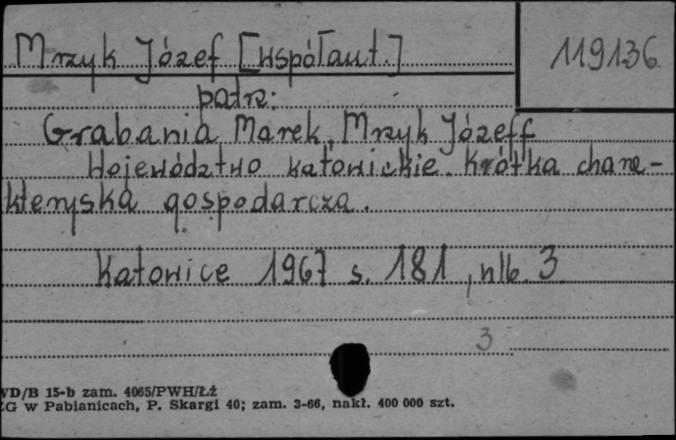 Mrzyk Józef [współaut.]
119136
patrz:
Grabania Marek, Mrzyk Józeff
Województwo katowickie. Krótka chara-
kteryska gospodarcza.
Katowice 1967 s. 181, nlb. 3
3
WD/B 15-b zam. 4065/PWH/Łź
ZG w Pabianicach, P. Skargi 40; zam. 3-66, nakł. 400 000 szt.